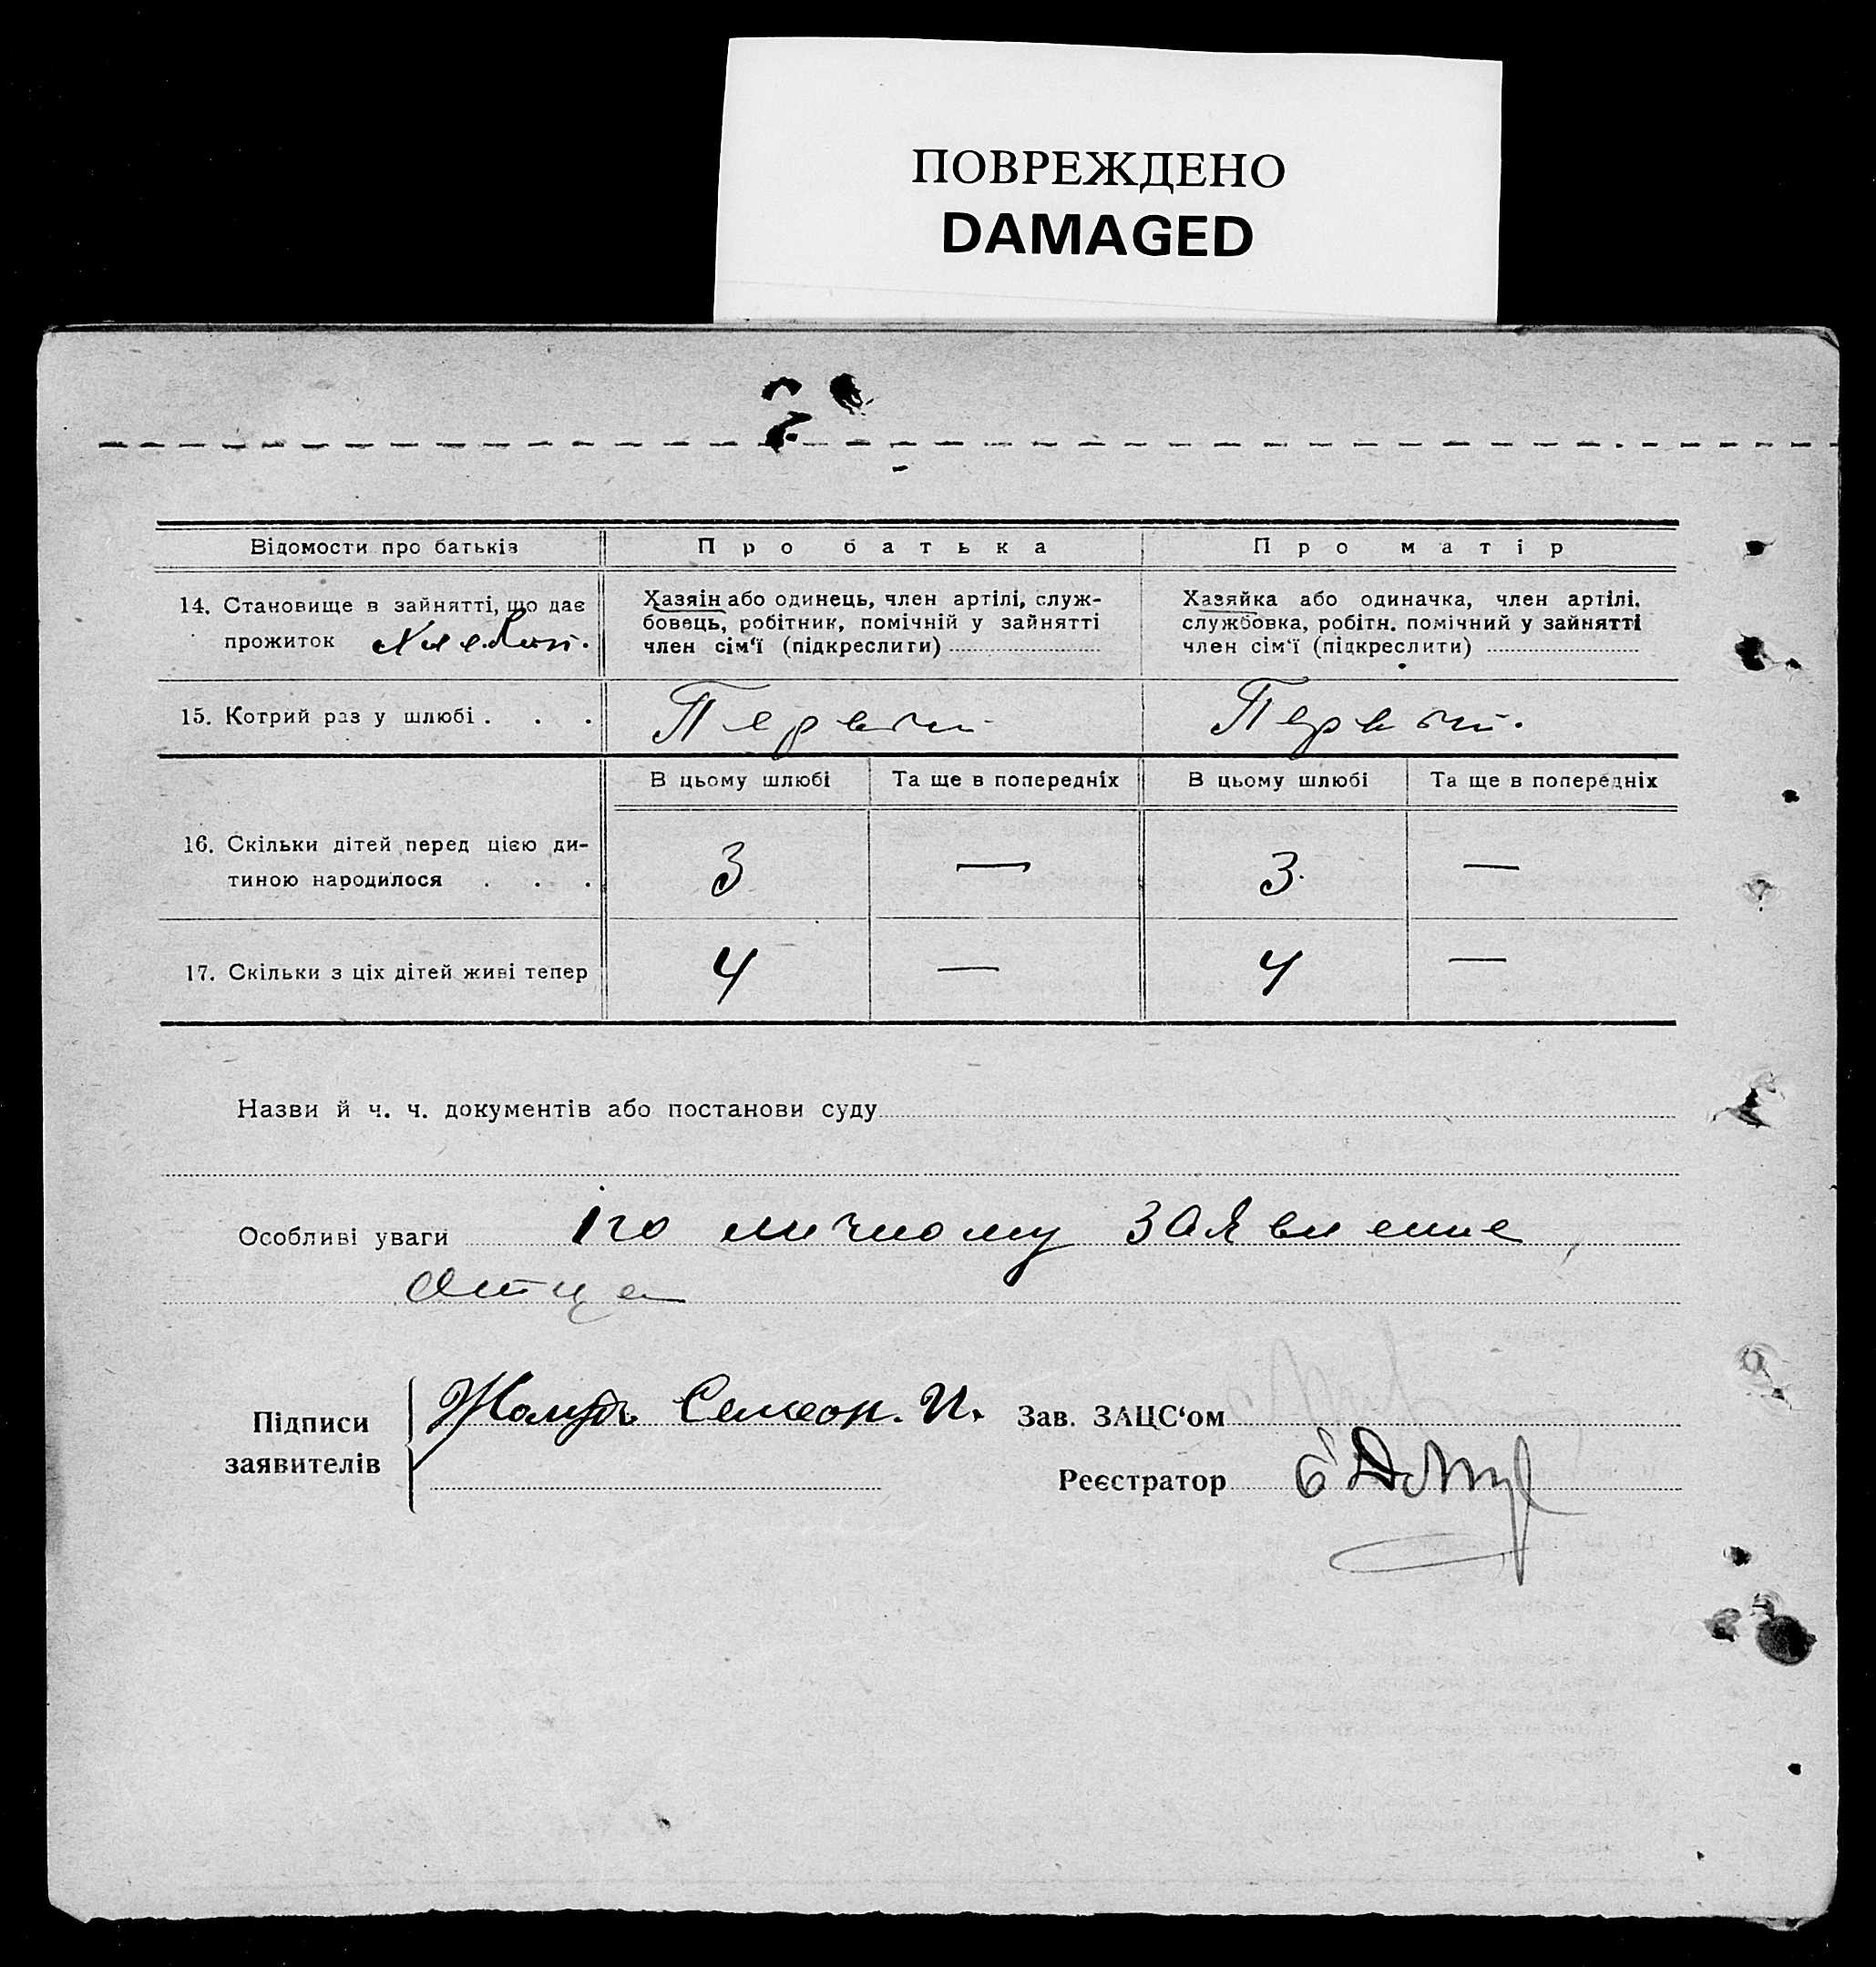 ПОВРЕЖДЕНО
DAMAGED
Відомости про батьків
Про батька
Про матір
14. Становище в зайнятті, що дає
прожиток
Хазяїн або одинець, член артілі, служ-
бовець, робітник, помічній у зайнятті
член сім'ї (підкреслити)
Хазяйка або одиначка, член артілі,
службовка, робітн. помічний у зайнятті
член сім'ї (підкреслити)
15. Котрий раз у шлюбі . . .
Первый
Первый.
В цьому шлюбі
Та ще в попередніх
В цьому шлюбі
Та ще в попередніх
16. Скільки дітей перед цією ди-
тиною народилося . . .
3
—
3.
—
17. Скільки з ціх дітей живі тепер
4
—
4
—
Назви й ч. ч. документів або постанови суду
Особливі уваги По личному заявление
отца
Підписи
заявителів
Семеон. И.
Зав. ЗАЦС'ом
Реєстратор